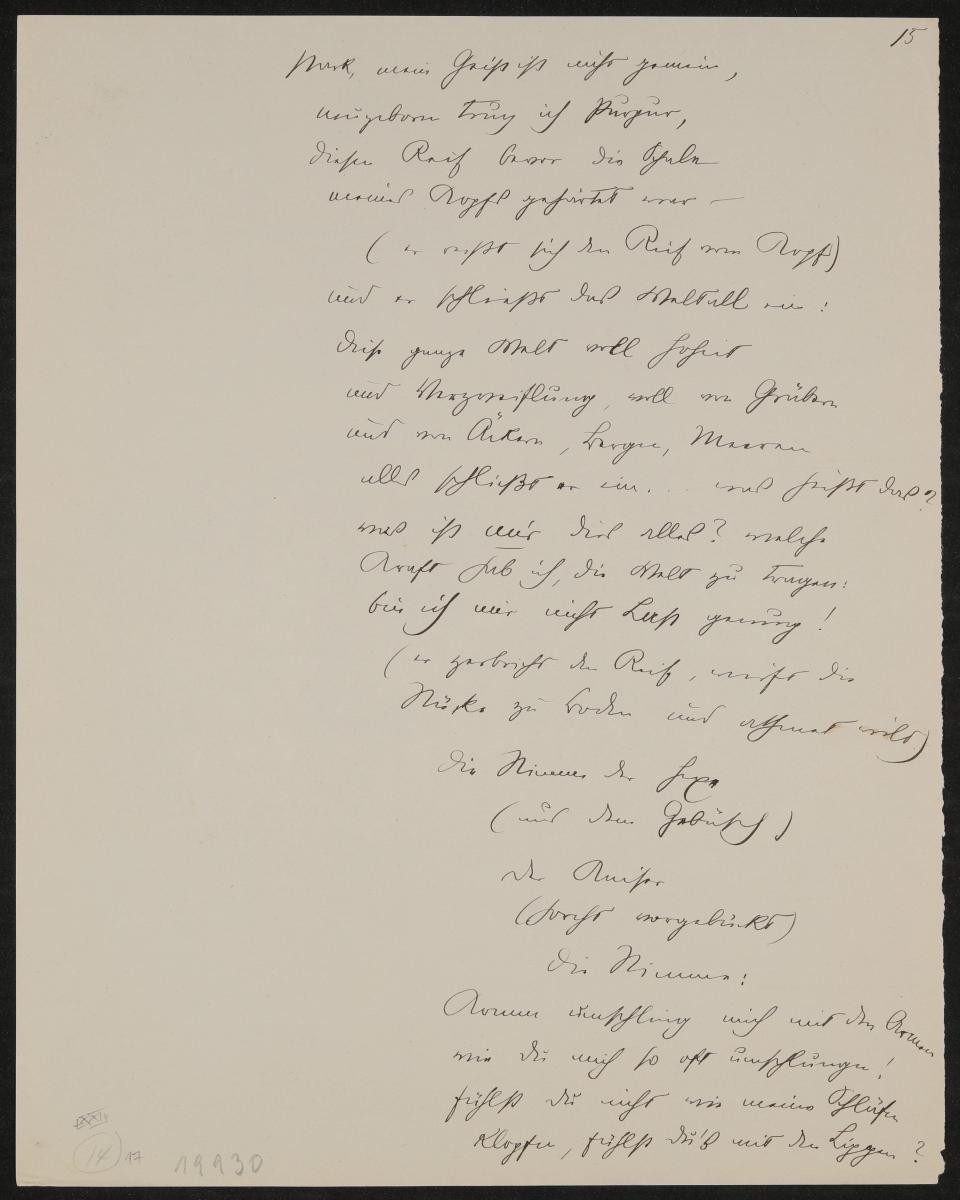 15
Merk, mein Geist ist nicht gemein,
neugeboren trug ich Purpur,
diesen Reif bevor die Schale
meines Kopfs gehärtet war –
(er reißt sich den Reif vom Kopf)
und er schließt das Weltall ein:
diese ganze Welt voll Hoheit
und Verzweiflung, voll von Gräbern
und von Äckern, Bergen, Meeren
alles schließt er ein... was heißt das?
was ist mir dies alles? welche
Kraft hab ich, die Welt zu tragen:
bin ich mir nicht Last genung!
(er zerbricht den Reif, wirft die
Stücke zu Boden und athmet wild)
Die Stimme der Hexe
(aus dem Gebüsch)
Der Kaiser
(horcht vorgebückt)
Die Stimme:
Komm umschling mich mit den Armen
wie du mich so oft umschlungen!
fühlst du nicht wie meine Schläfen
klopfen, fühlst du's mit den Lippen?
14
17
19930